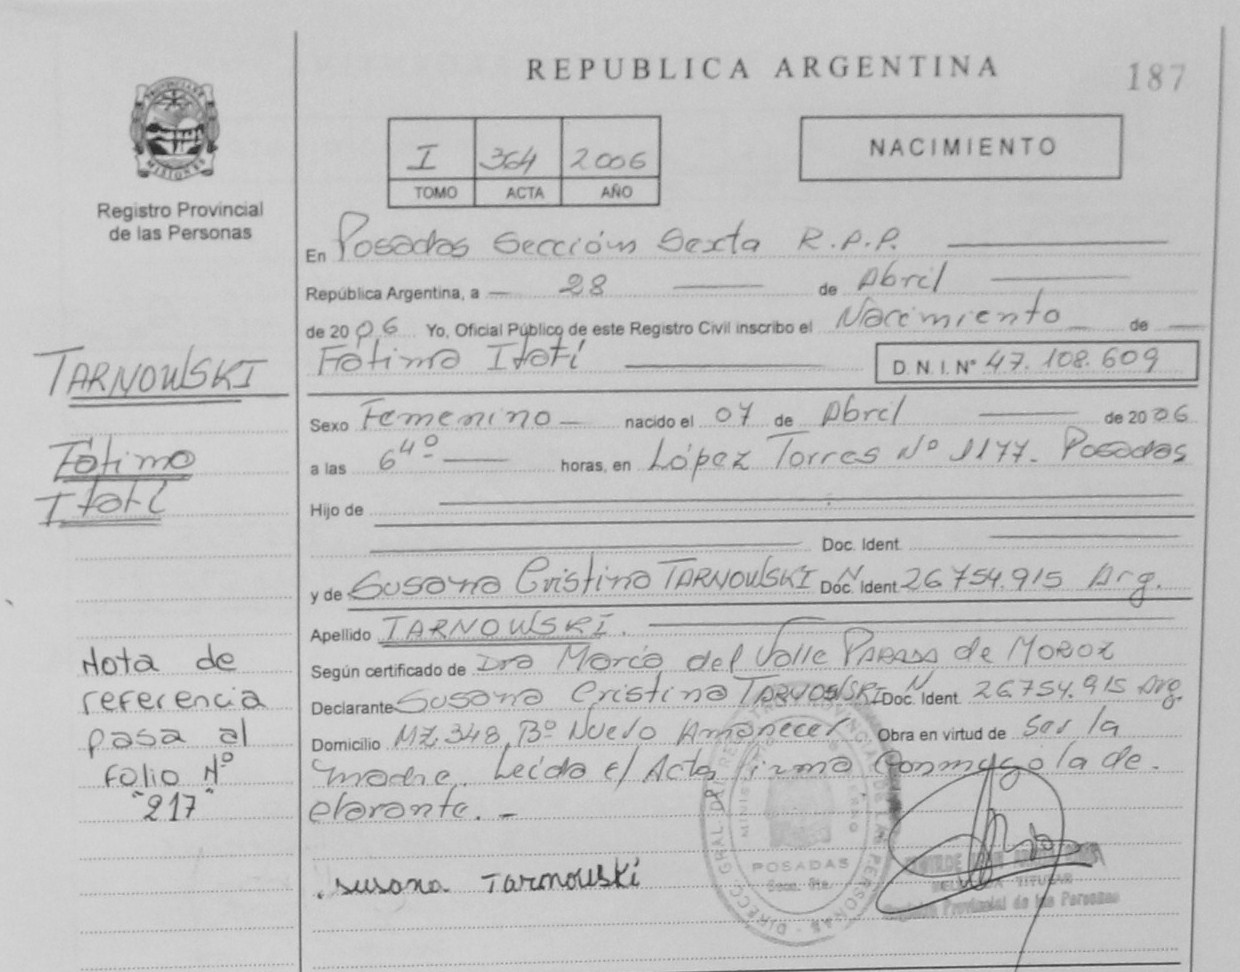 REPUBLICA ARGENTINA
187
PROVINCIA DE
MISIONES
Registro Provincial
de las Personas
I 364 2006
TOMO ACTA AÑO
NACIMIENTO
En Posadas Sección Sexta R.P.P.
República Argentina, a 28 de Abril
de 2006 Yo, Oficial Público de este Registro Civil inscribo el Nacimiento de
Fatima Itatí D. N. I. N° 47.108.609
TARNOWSKI
Fatima
Itatí
Sexo Femenino nacido el 07 de Abril de 2006
a las 6 40 horas, en López Torres Nº 1177. Posadas
Hijo de
Doc. Ident.
y de Susana Cristina TARNOWSKI Doc. Ident. N 26754.915 Arg.
Apellido TARNOWSKI.
Según certificado de Dra Marcia del Valle PARADA de MOROZ
Declarante Susana Cristina TARNOWSKI Doc. Ident. N 26754.915 Arg.
Domicilio MZ.348, Bº Nuevo Amanecer Obra en virtud de Ser la
madre. Leida el Acta firma conmigo la de-
clarante.-
Nota de
referencia
pasa al
Folio Nº
"217"
Susana Tarnowski
DIRECC. GRAL. DEL REGISTRO PROVINCIAL DE LAS PERSONAS
POSADAS
Secc. 6ta.
TITULAR
Registro Provincial de las Personas